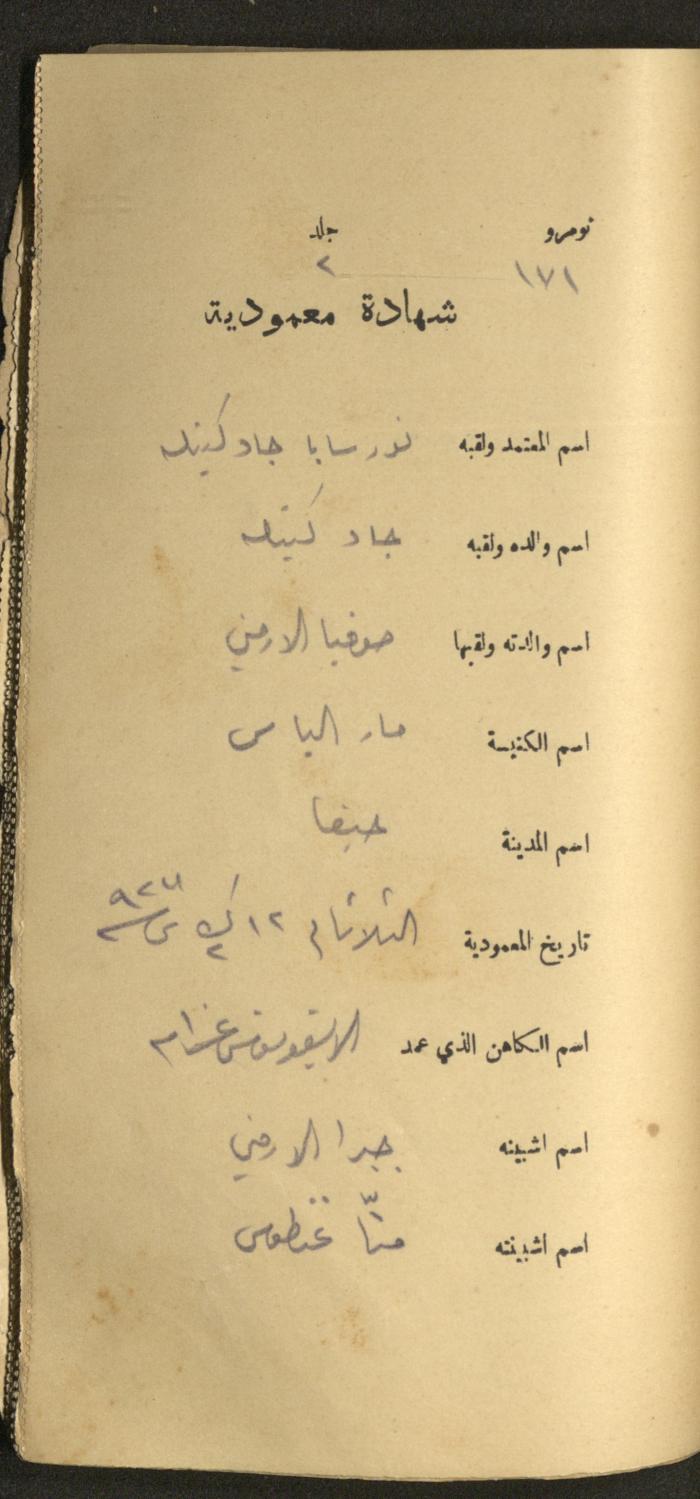 نومرو جلد
١٧١ ٢
شهادة معمودية
اسم المعتمد ولقبه نور سابا جاد
اسم والده ولقبه جاد
اسم والدته ولقبها صوفيا الارمني
اسم الكنيسة مار الياس
اسم المدينة حيفا
تاريخ المعمودية الثلاثا ١٢ ك٢
اسم الكاهن الذي عمد
اسم اشبينه جبرا الارمني
اسم اشبينته